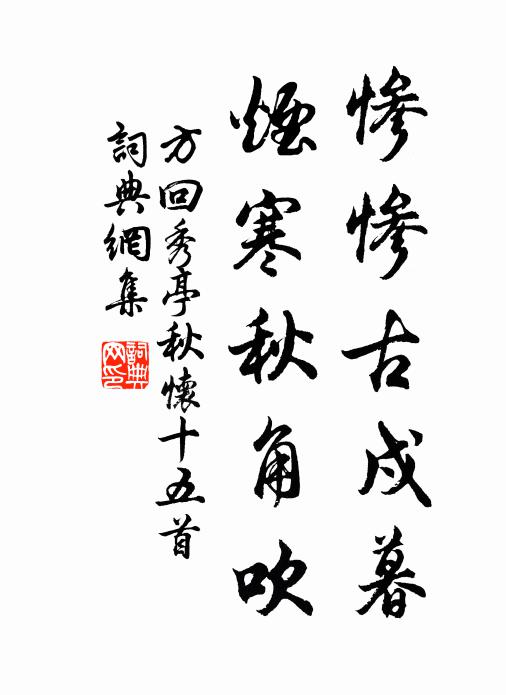 惨惨古戍暮
煙寒秋角吹
方回秀亭秋懷十五首
詞典網集
詞典网印